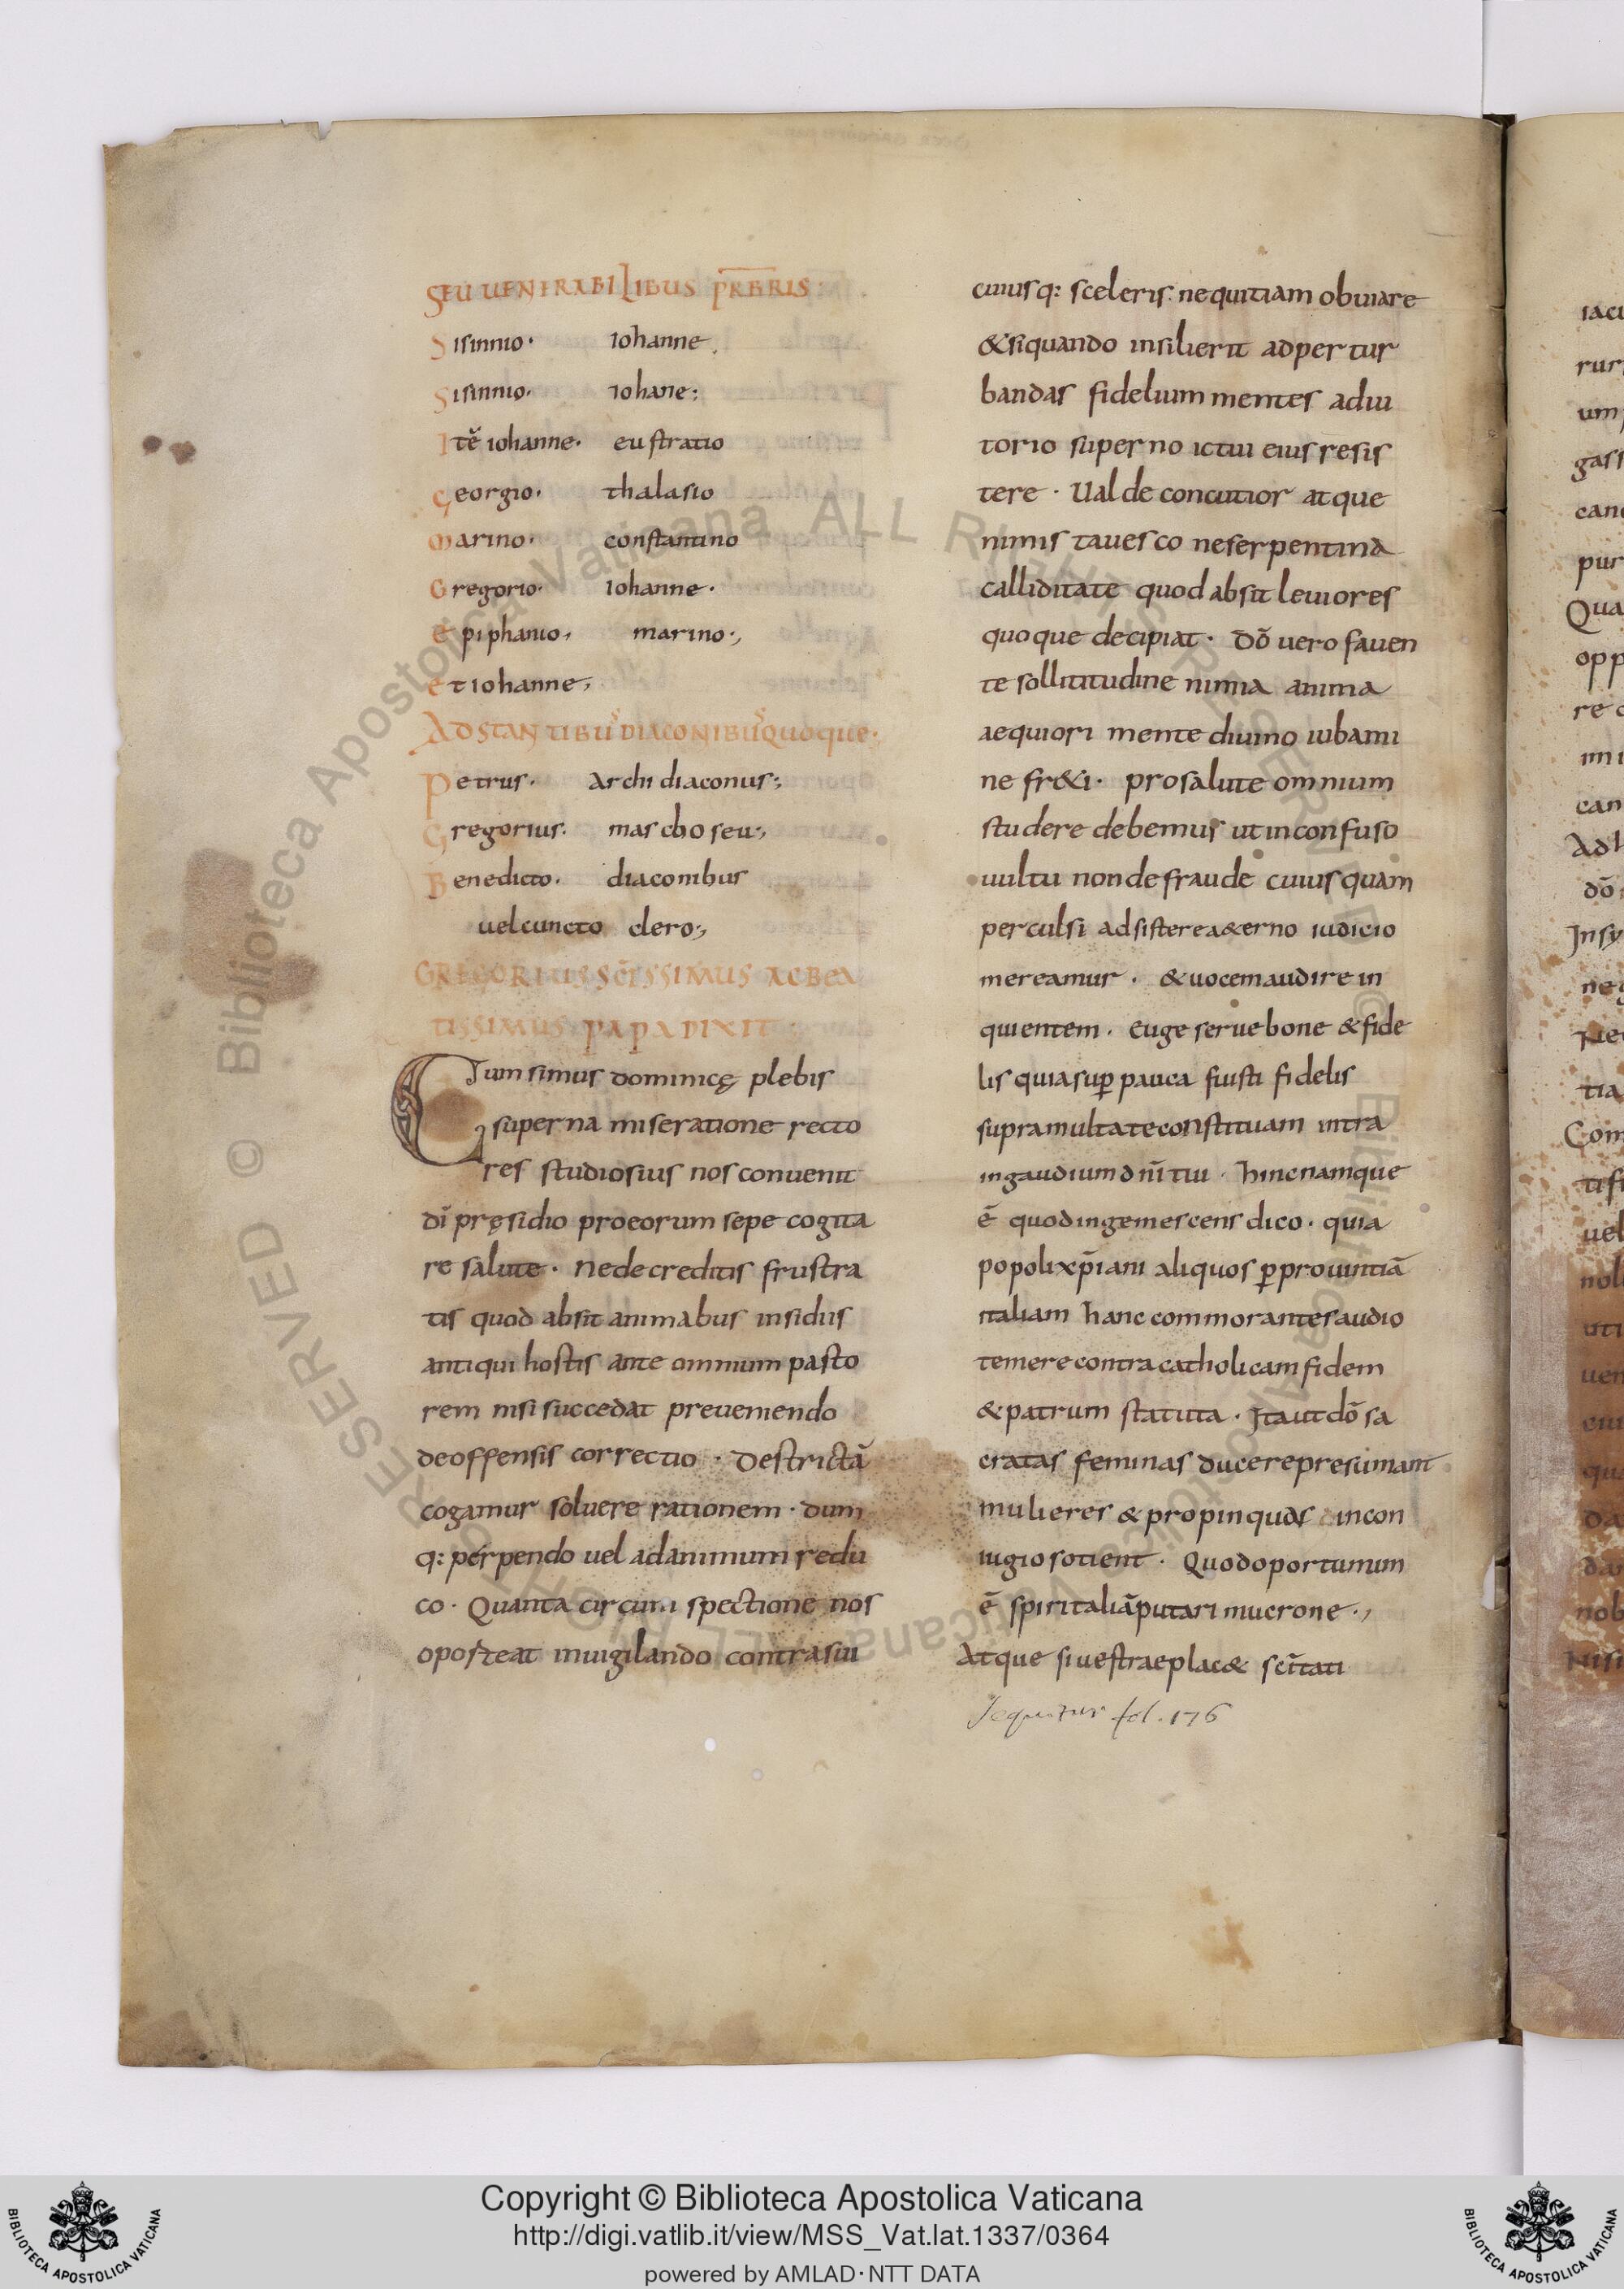 SEU UENERABILIBUS PRBRIS
Sisinnio· Iohanne
Sisinnio· Iohane:
Itē iohanne· eustratio
Georgio· thalasio
Marino· constantino
Gregorio· Iohanne·
Epiphanio, marino·,
et Iohanne,
ADSTANTIBUS DIACONIBUS QUOQUE·
Petrus· Archidiaconus;
Gregorius· mascho seu·,
Benedicto· diaconibus
uel cuncto clero·,
GREGORIUS SCISSIMUS AC BEA
TISSIMUS PAPA DIXIT
Cum simus dominicę plebis
superna miseratione recto
res studiosius nos conuenit
dī pręsidio pro eorum sepe cogita
re salute· ne decreditis frustra
tis quod absit animabus insidiis
antiqui hostis ante omnium pasto
rem nisi succedat preueniendo
de offensis correctio· Destrictā
cogamur soluere rationem· dum
q: perpendo uel ad animum redu
co· Quanta circumspectione nos
oporteat inuigilando contra sui
cuiusq: sceleris nequitiam obuiare
& siquando insilierit ad pertur
bandas fidelium mentes adiu
torio superno ictui eius resis
tere· Ualde concutior atque
nimis tauesco ne serpentina
calliditate quod absit leuiores
quoque decipiat· dō uero fauen
te sollititudine nimia anima
aequiori mente diuino iubami
ne fr&i· pro salute omnium
studere debemus ut inconfuso
uultu non de fraude cuiusquam
perculsi adsistere a&erno iudicio
mereamur· & uocem audire in
quientem· euge serue bone & fide
lis quia sup pauca fuisti fidelis
supra multa te constituam intra
in gaudium dnī tui· hinc namque
ē quod ingemescens dico· quia
popoli xp̄iani aliquos p prouintiā
italiam hanc commorantes audio
temere contra catholicam fidem
& patrum statuta· Ita ut dō sa
cratas feminas ducere presumant
mulieres & propinquas in con
iugio sotient· Quod oportunum
ē spiritali āputari mucrone·,
Atque si uestrae plac& scītati
Sequitur fol. 176
© Biblioteca Apostolica Vaticana ALL RIGHTS RESERVED
Copyright © Biblioteca Apostolica Vaticana
http://digi.vatlib.it/view/MSS_Vat.lat.1337/0364
powered by AMLAD·NTT DATA
BIBLIOTECA APOSTOLICA VATICANA
BIBLIOTECA APOSTOLICA VATICANA